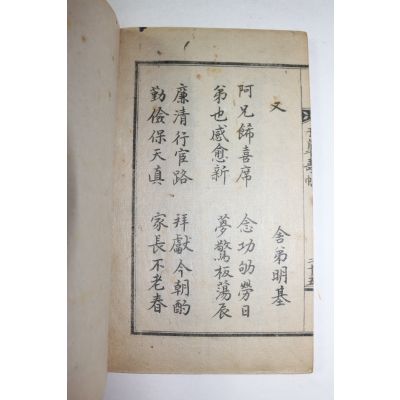 又
舍弟明基
阿兄餙喜席 念功劬勞日
弟也感愈新 夢驚板蕩辰
廉清行官路 拜獻今朝酌
勤儉保天真 家長不老春
二十五